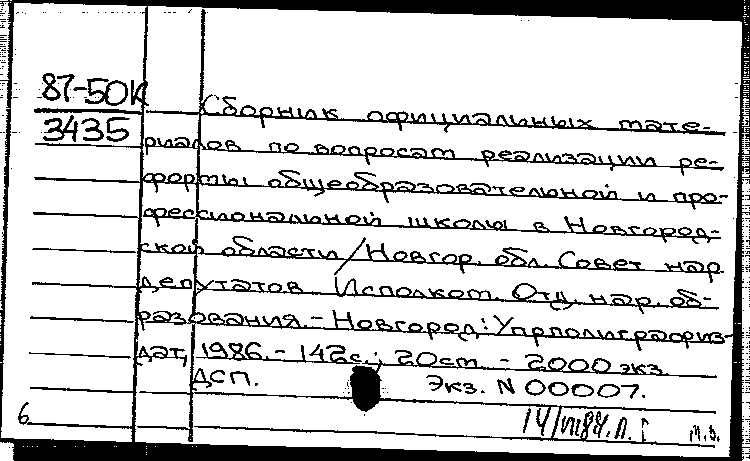 87-50К
3435
Сборник официальных мате-
риалов по вопросам реализации ре-
формы общеобразовательной и про-
фессиональной школы в Новгород-
ской области/Новгор. обл. Совет нар.
депутатов. Исполком. Отд. нар. об-
разования.-Новгород: Упрполиграфиз-
дат, 1986.-142с.; 20см.-2000экз.
ДСП. Экз. N 00007.
6